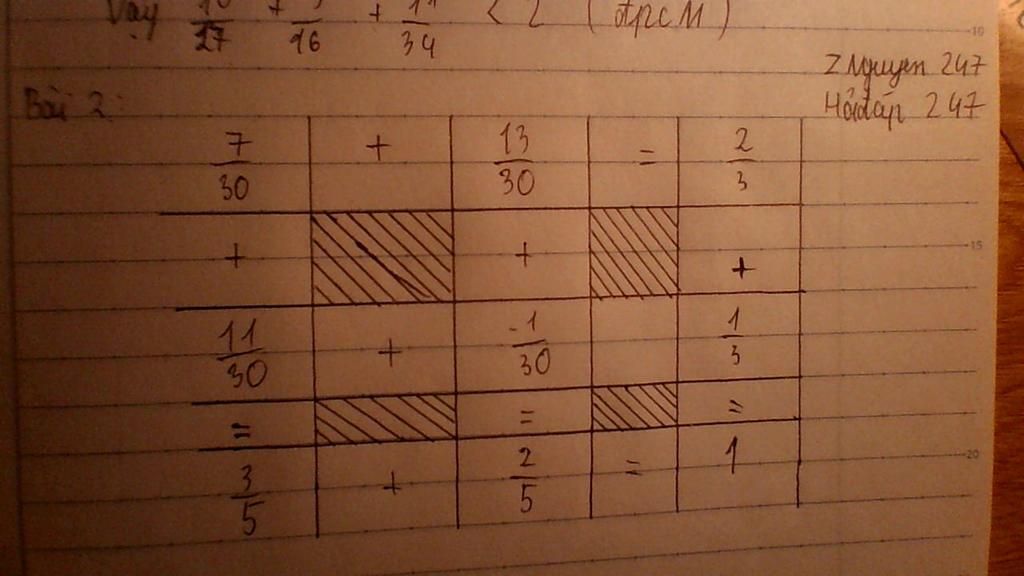 Vậy 10/17 + 5/16 + 11/34 < 2 (đpcm)
ZNguyen 247
Hỏiđáp 247
Bài 2:
7/30 + 13/30 = 2/3
+ + +
11/30 + -1/30 1/3
= = =
3/5 + 2/5 = 1
10
15
20